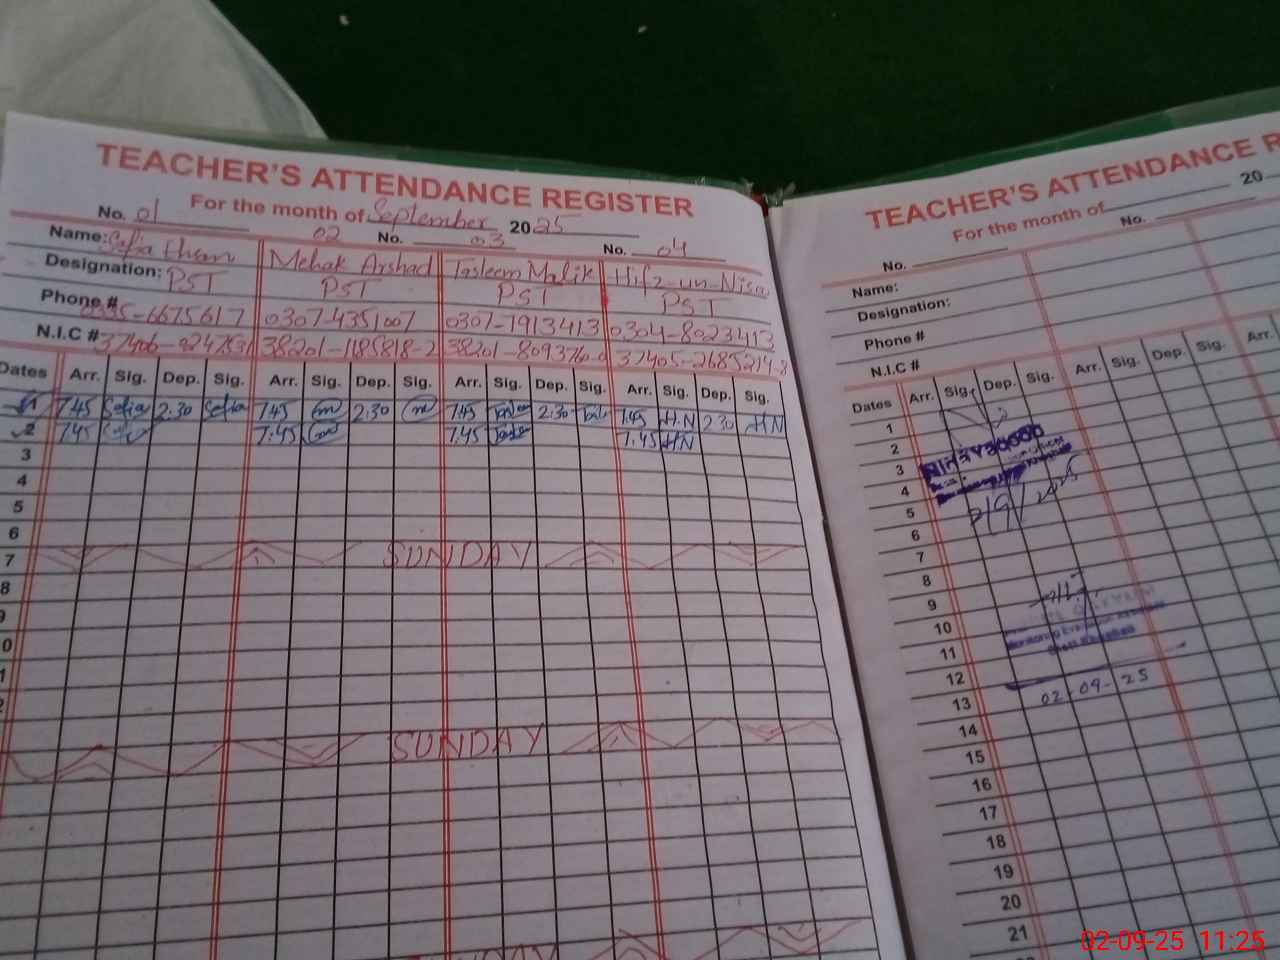 TEACHER'S ATTENDANCE REGISTER
For the month of September 2025
No. 01 02 No. 03 No. 04
Name: Mehak Arshad Tasleem Malik Hifz-un-Nisa
Designation: PST PST PST PST
Phone # 0307-4351007 0301-1913413 0304-8023413
N.I.C # 38201-1185818-2 37405-2685214-8
Dates Arr. Sig. Dep. Sig. Arr. Sig. Dep. Sig. Arr. Sig. Dep. Sig. Arr. Sig. Dep. Sig.
1 7.45 Safia 2.30 Safia 7.45 2.30 7.45 2.30 7.45 H.N 2.30 HN
2 7.45 7.45 7.45 7.45 HN
3
4
5
6
7 SUNDAY
8
SUNDAY
TEACHER'S ATTENDANCE R
For the month of 20
No. No.
Name:
Designation:
Phone #
N.I.C #
Dates Arr. Sig. Dep. Sig. Arr. Sig. Dep. Sig. Arr.
1
2
3
4
5 2/9/2025
6
7
8
9
10
11
12
13 02-09-25
14
15
16
17
18
19
20
21
02-09-25 11:25